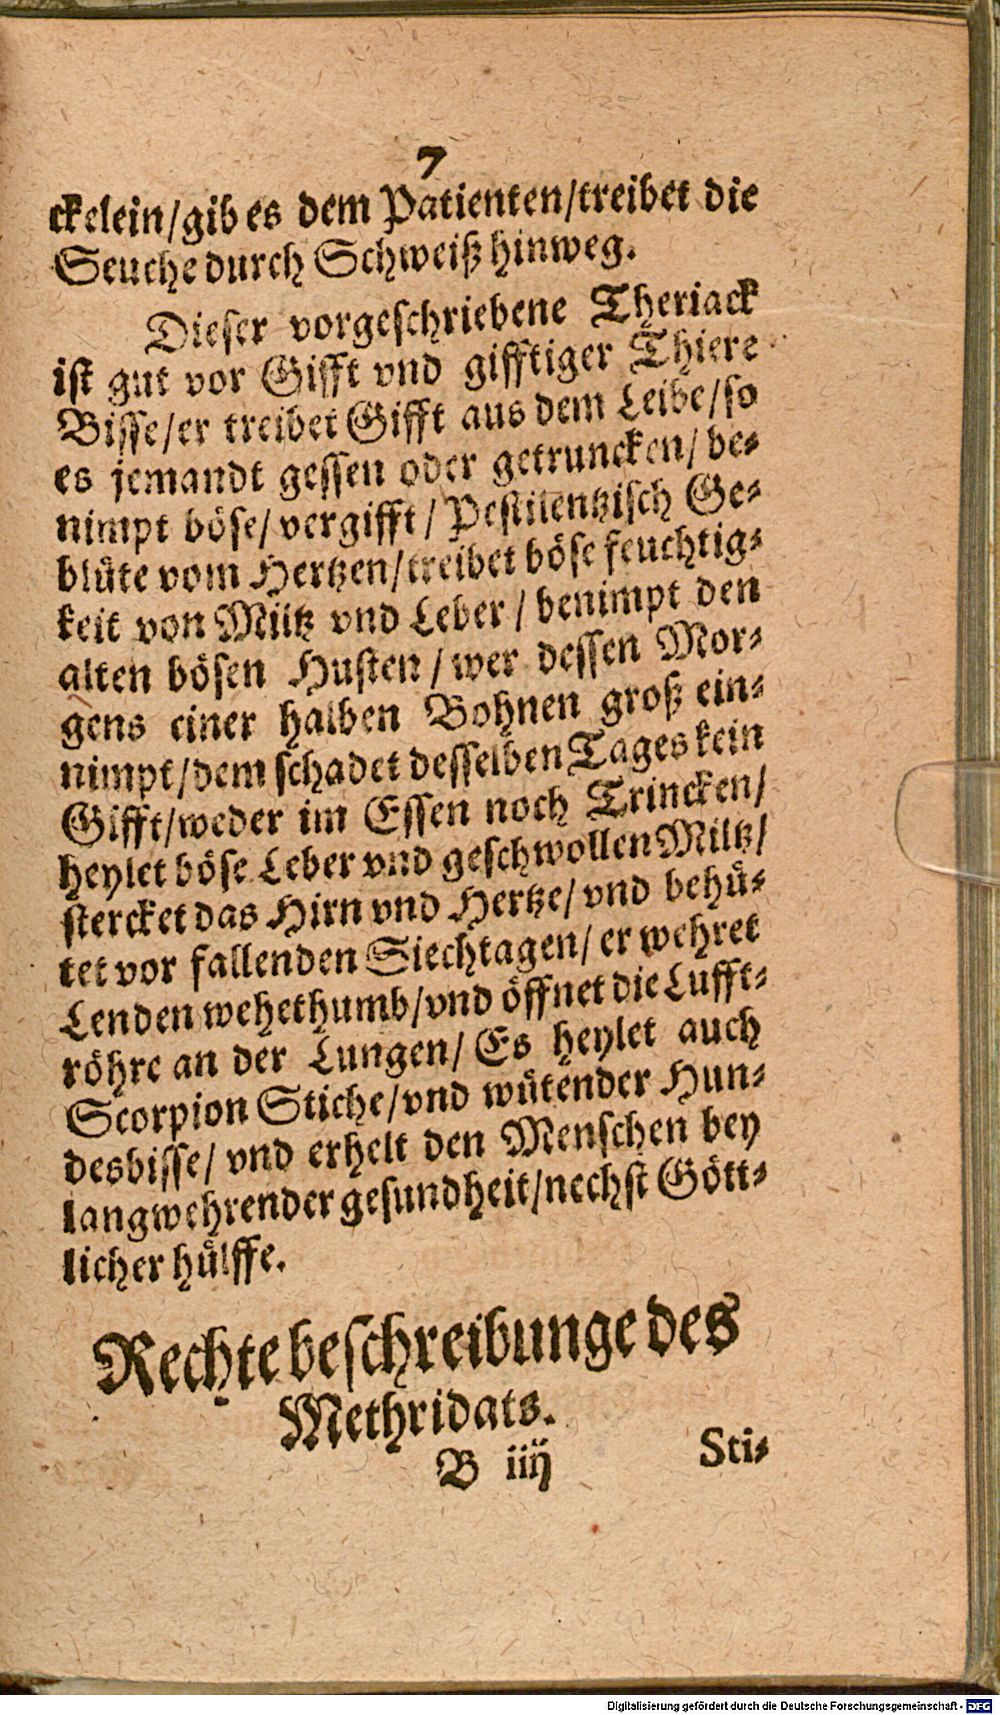 7
ckelein/gib es dem Patienten/treibet die
Seuche durch Schweiß hinweg.
Dieser vorgeschriebene Theriack
ist gut vor Gifft vnd gifftiger Thiere
Bisse/er treibet Gifft aus dem Leibe/so
es jemandt gessen oder getruncken/ be-
nimpt böse/ vergifft/ Pestilentzisch Ge-
blüte vom Hertzen/treibet böse feuchtig-
keit von Miltz vnd Leber / benimpt den
alten bösen Husten / wer dessen Mor-
gens einer halben Bohnen groß ein-
nimpt/dem schadet desselben Tages kein
Gifft/weder im Essen noch Trincken/
heylet böse Leber vnd geschwollen Miltz/
stercket das Hirn vnd Hertze/ vnd behü-
tet vor fallenden Siechtagen/ er wehret
Lenden wehethumb/vnd öffnet die Lufft-
röhre an der Lungen/ Es heylet auch
Scorpion Stiche/vnd wütender Hun-
desbisse/ vnd erhelt den Menschen bey
langwehrender gesundheit/nechst Gött-
licher hülffe.
Rechte beschreibunge des
Methridats.
B iiij Sti-
Digitalisierung gefördert durch die Deutsche Forschungsgemeinschaft - DFG